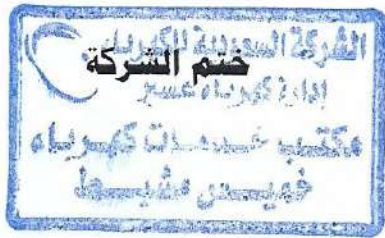 الشركة السعودية للكهرباء
ختم الشركة
إدارة كهرباء عسير
مكتب خدمات كهرباء
خميس مشيط